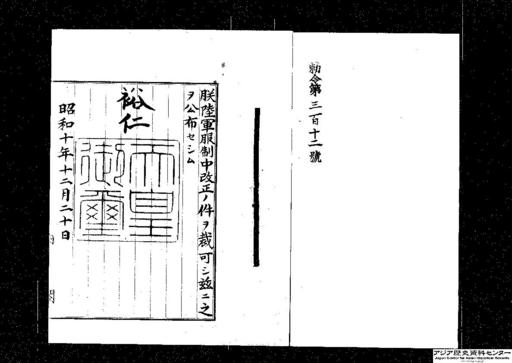 勅令第三百十二號
朕陸軍服制中改正ノ件ヲ裁可シ玆ニ之
ヲ公布セシム
裕仁
天皇御璽
昭和十年十二月二十日
アジア歴史資料センター
Japan Center for Asian Historical Records